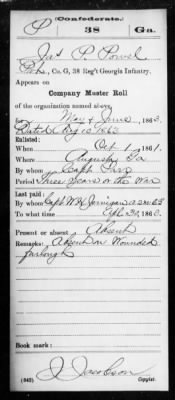 (Confederate.)
P 38 Ga.
Jas P. Powel
Pvt, Co. G, 38 Reg't Georgia Infantry.
Appears on
Company Muster Roll
of the organization named above,
for May & June, 1863.
Dated Aug 10 1863
Enlisted:
When Oct 1, 1861.
Where Augusta Ga
By whom Capt
Period Three Years or the War
Last paid:
By whom Capt W H Jernigan
To what time Apl 30, 1863.
Present or absent Absent
Remarks: Absent on Wounded
furlough
Book mark:
(642) J. Jacobson
Copyist.